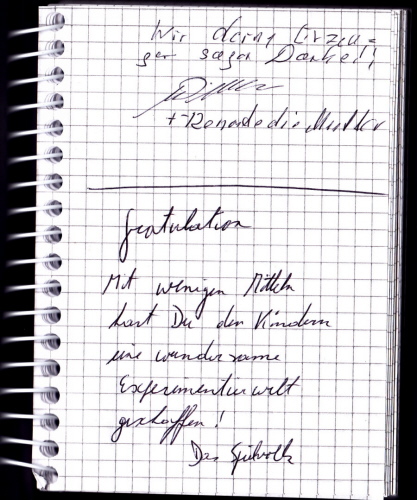 Wir deine Erzeu=
ger sagen Danke!!
+ Renate die Mutter
Gratulation
Mit wenigen Mitteln
hast Du den Kindern
eine wundersame
Experimentierwelt
geschaffen!
Das Spielvolk